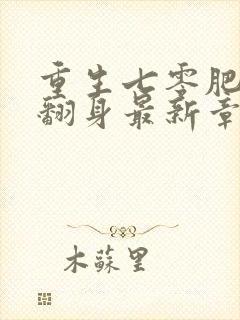 重生七零肥
翻身最新章
木蘇里